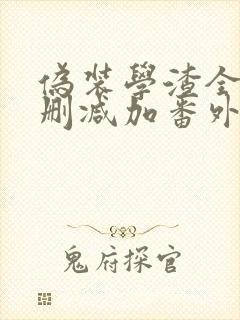 偽裝學渣全
刪減加番外
鬼府探官